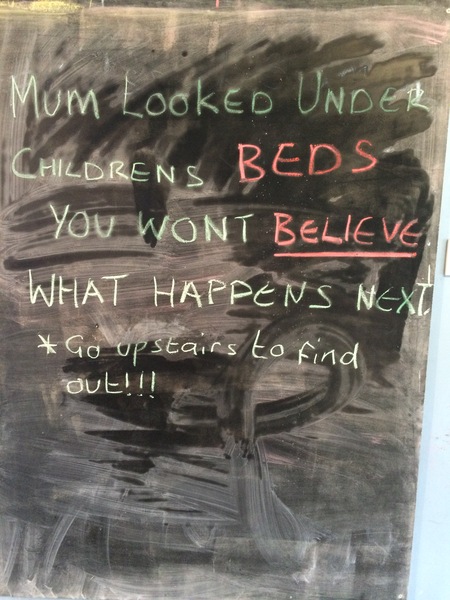 MUM LOOKED UNDER
CHILDRENS BEDS
YOU WONT BELIEVE
WHAT HAPPENS NEXT.
* Go upstairs to find
out!!!